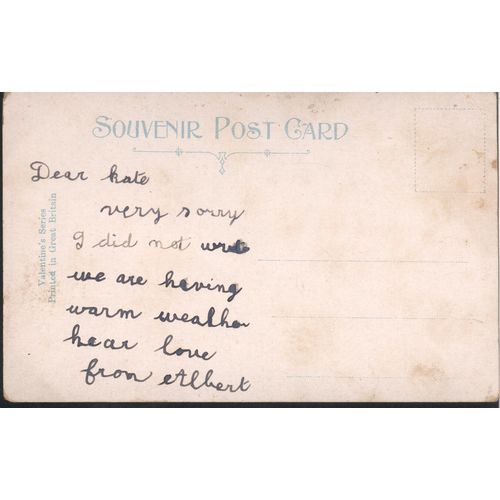 SOUVENIR POST CARD
Valentine's Series
Printed in Great Britain
Dear kate
very sorry
I did not
we are having
warm weather
hear love
from Albert